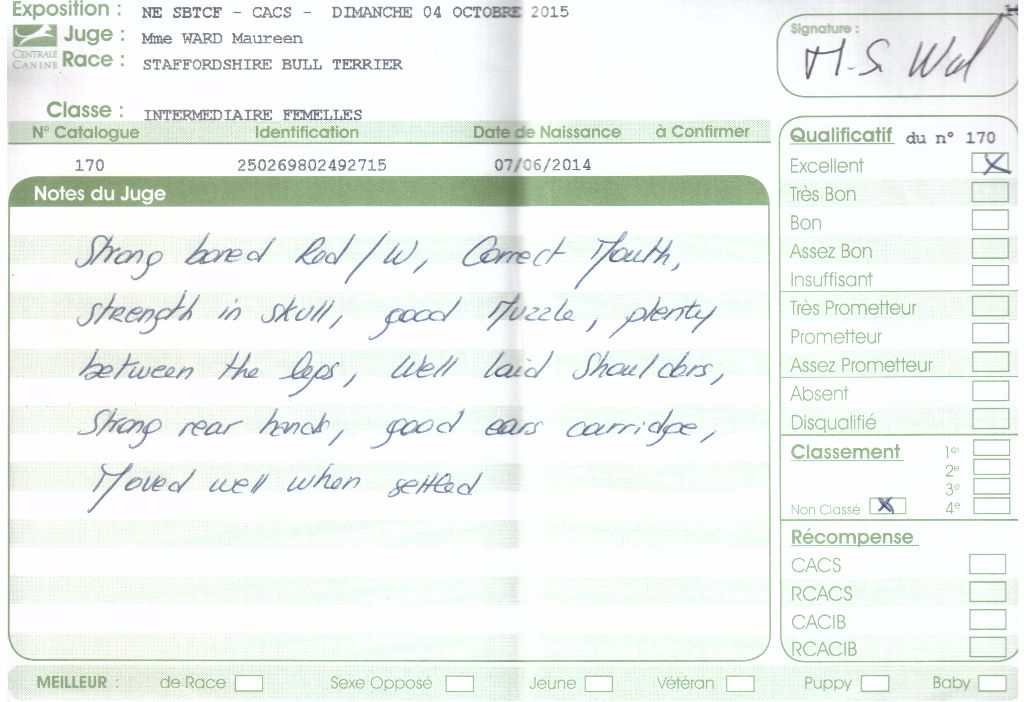 Exposition : NE SBTCF - CACS - DIMANCHE 04 OCTOBRE 2015
Juge : Mme WARD Maureen
CENTRALE CANINE
Race : STAFFORDSHIRE BULL TERRIER
Classe : INTERMEDIAIRE FEMELLES
Signature :
M.S. Wal
N° Catalogue Identification Date de Naissance à Confirmer
170 250269802492715 07/06/2014
Notes du Juge
Strong boned Red/W, Correct Mouth,
strength in skull, good Muzzle, plenty
between the legs, Well laid Shoulders,
Strong rear hands, good ears carridge,
Moved well when settled
Qualificatif du n° 170
Excellent X
Très Bon
Bon
Assez Bon
Insuffisant
Très Prometteur
Prometteur
Assez Prometteur
Absent
Disqualifié
Classement 1er
2e
3e
Non Classé X 4e
Récompense
CACS
RCACS
CACIB
RCACIB
MEILLEUR : de Race Sexe Opposé Jeune Vétéran Puppy Baby